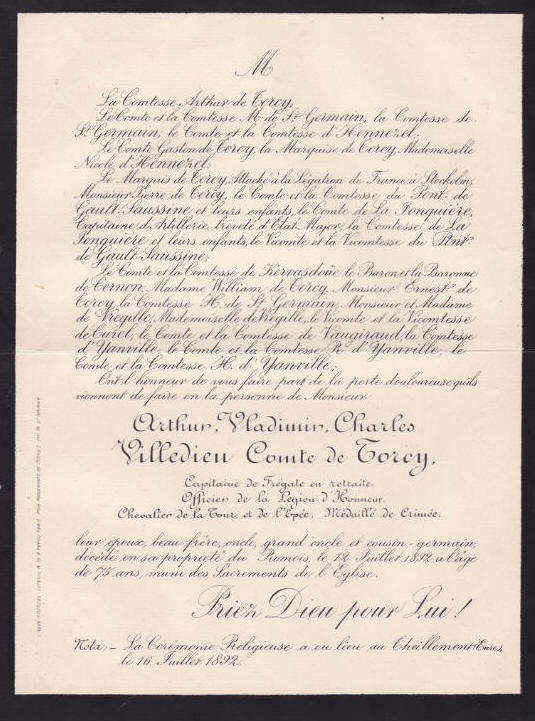 M
La Comtesse Arthur de Torcy,
Le Comte et la Comtesse M. de St Germain, la Comtesse de
St Germain, le Comte et la Comtesse d'Hennezel;
Le Comte Gaston de Torcy, la Marquise de Torcy, Mademoiselle
Nicole d'Hennezel;
Le Marquis de Torcy, Attaché à la Légation de France à Stockolm,
Monsieur Pierre de Torcy, le Comte et la Comtesse du Pont de
Gault-Saussine et leurs enfants, le Comte de La Jonquière,
Capitaine d'Artillerie, breveté d'Etat-Major, la Comtesse de La
Jonquière et leurs enfants, le Vicomte et la Vicomtesse du Pont
de Gault Saussine;
Le Comte et la Comtesse de Kervasdoüe, le Baron et la Baronne
de Cernon, Madame William de Torcy, Monsieur Ernest de
Torcy, la Comtesse H. de St Germain, Monsieur et Madame
de Vrégille, Mademoiselle de Vrégille, le Vicomte et la Vicomtesse
de Curel, le Comte et la Comtesse de Vaugiraud, la Comtesse
d'Yanville, le Comte et la Comtesse R. d'Yanville, le
Comte et la Comtesse H. d'Yanville;
Ont l'honneur de vous faire part de la perte douloureuse qu'ils
viennent de faire en la personne de Monsieur
Arthur, Vladimir, Charles
Villedieu Comte de Torcy,
Capitaine de Frégate en retraite
Officier de la Légion d'Honneur,
Chevalier de la Tour et de l'Epée, Médaillé de Crimée,
leur époux, beau-frère, oncle, grand oncle et cousin-germain,
décédé en sa propriété du Romois, le 12 Juillet 1892, a l'âge
de 75 ans, muni des Sacrements de l'Eglise.
Priez Dieu pour Lui!
Nota - La Cérémonie Religieuse a eu lieu au Theillement (Eure),
le 16 Juillet 1892.